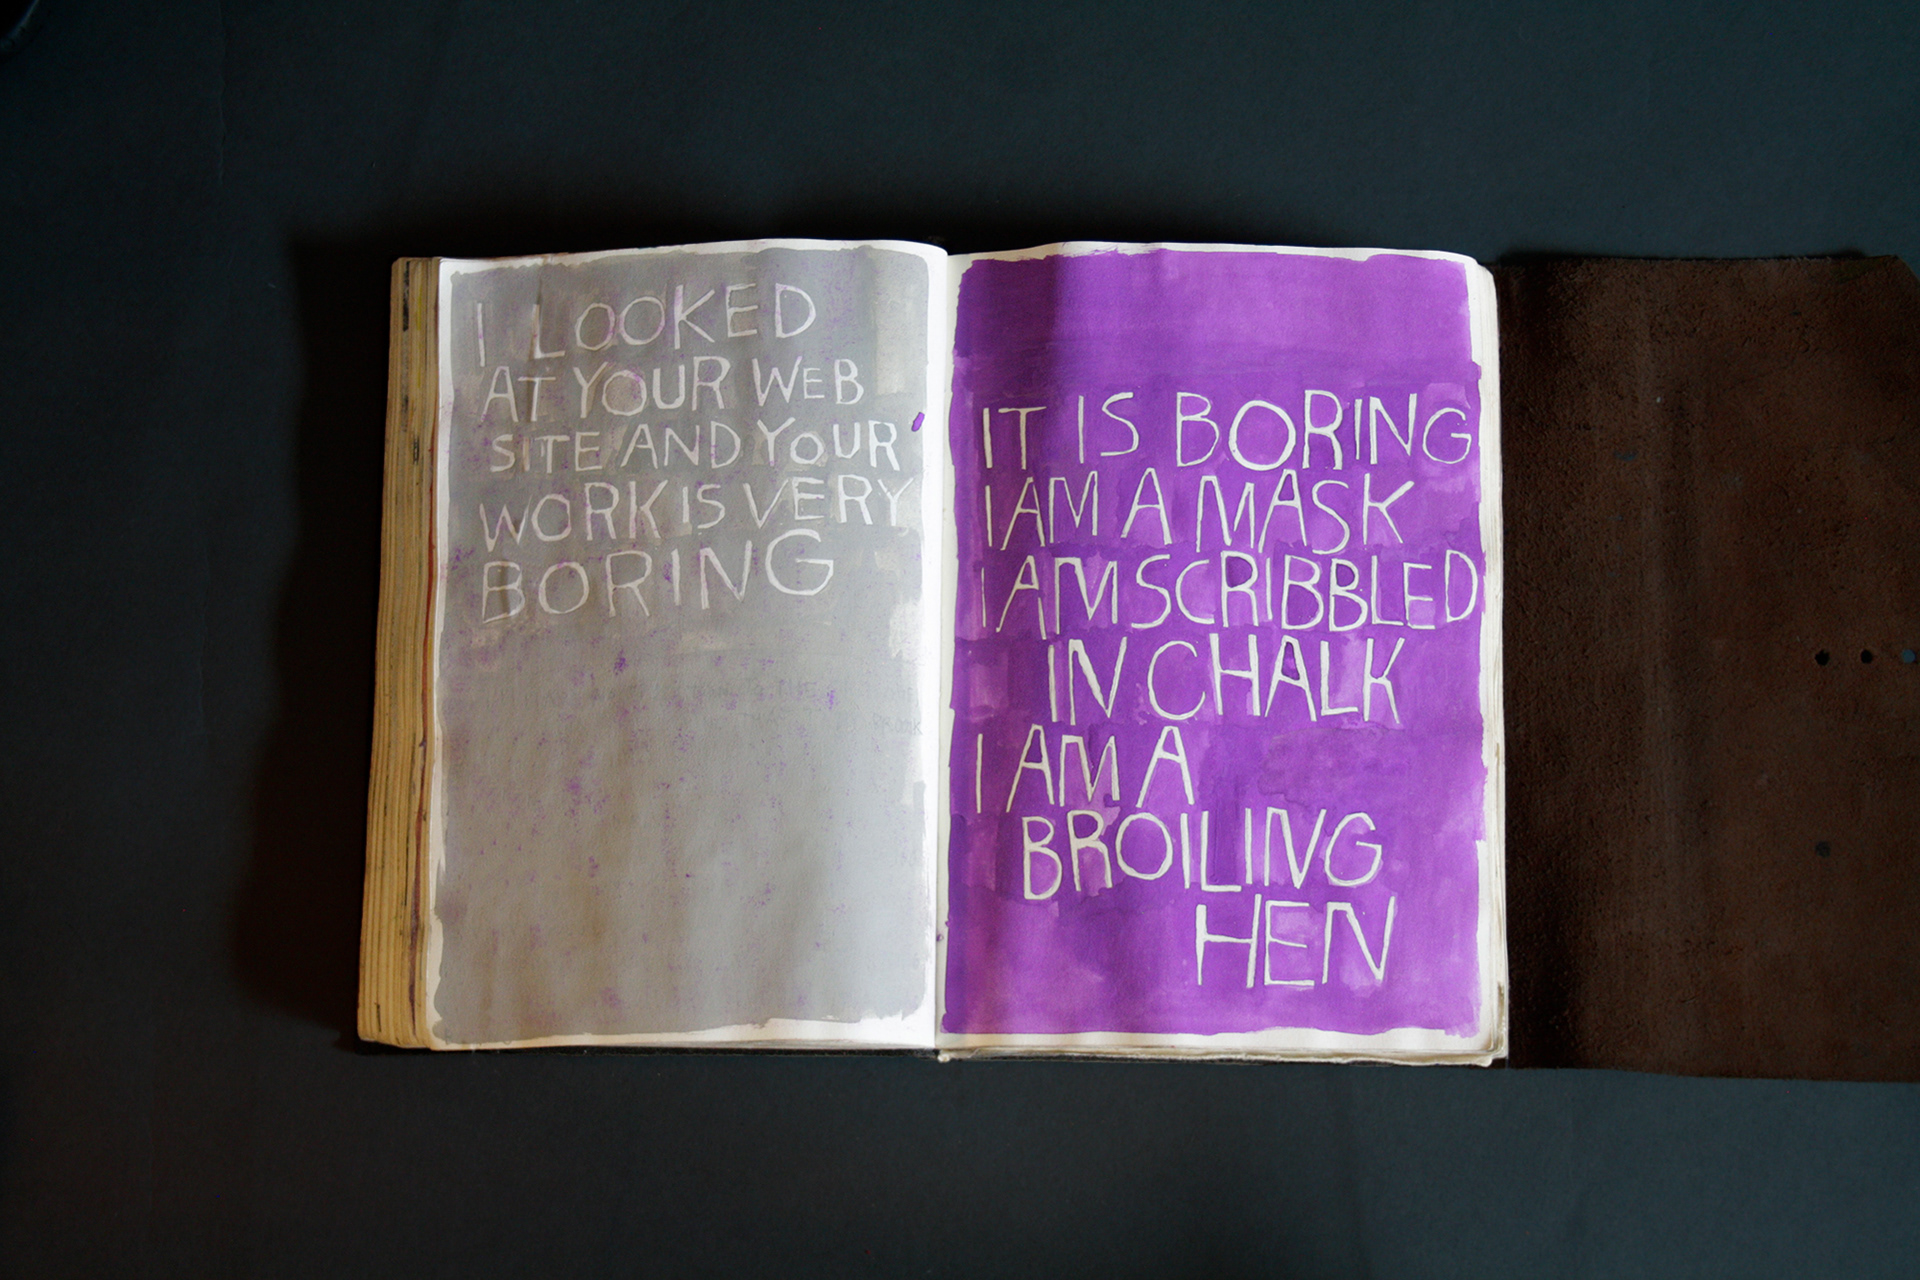 I LOOKED
AT YOUR WEB
SITE AND YOUR
WORK IS VERY
BORING
IT IS BORING
I AM A MASK
I AM SCRIBBLED
IN CHALK
I AM A
BROILING
HEN